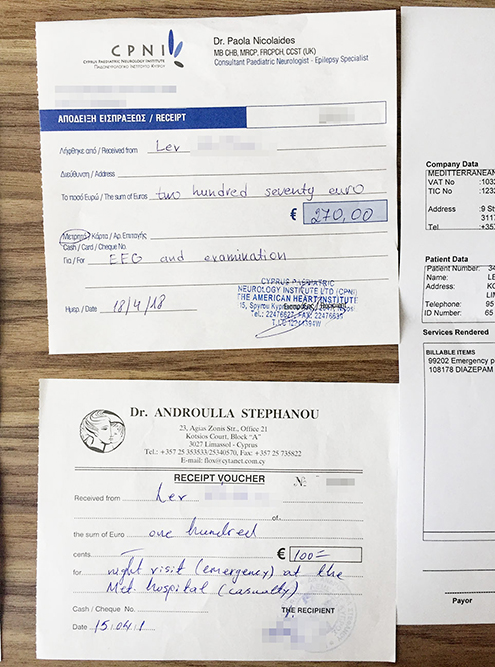 CPNI
CYPRUS PAEDIATRIC NEUROLOGY INSTITUTE
ΠΑΙΔΟΝΕΥΡΟΛΟΓΙΚΟ ΙΝΣΤΙΤΟΥΤΟ ΚΥΠΡΟΥ
Dr. Paola Nicolaides
MB CHB, MRCP, FRCPCH, CCST (UK)
Consultant Paediatric Neurologist - Epilepsy Specialist
ΑΠΟΔΕΙΞΗ ΕΙΣΠΡΑΞΕΩΣ / RECEIPT
Λήφθηκε από / Received from Lev
Διεύθυνση / Address
Το ποσό Ευρώ / The sum of Euros two hundred seventy euro
€ 270,00
Μετρητά / Κάρτα / Αρ. Επιταγής
Cash / Card / Cheque No.
Για / For EEG and examination
Ημερ. / Date 18/4/18
CYPRUS PAEDIATRIC
NEUROLOGY INSTITUTE LTD (CPNI)
THE AMERICAN HEART INSTITUTE
15, Spyrou
Tel.: 22476627, FAX: 22476635
Dr. ANDROULLA STEPHANOU
23, Agias Zonis Str., Office 21
Kotsios Court, Block "A"
3027 Limassol - Cyprus
Tel.: +357 25 353533/25340570, Fax: +357 25 735822
E-mail: flox@cytanet.com.cy
RECEIPT VOUCHER
Nº
Received from Lev
of
the sum of Euro one hundred
cents € 100=
for night visit (emergency) at the
Med. hospital (casualty)
Cash / Cheque No. THE RECIPIENT
Date 15/04/1
Company Data
MEDITTERANEAN
VAT No :103
TIC No :123
Address :9 St
311
Tel :+35
Patient Data
Patient Number: 34
Name: LE
Address: KO
LIM
Telephone: 95
ID Number: 65
Services Rendered
BILLABLE ITEMS
99202 Emergency p
108178 DIAZEPAM
Payor